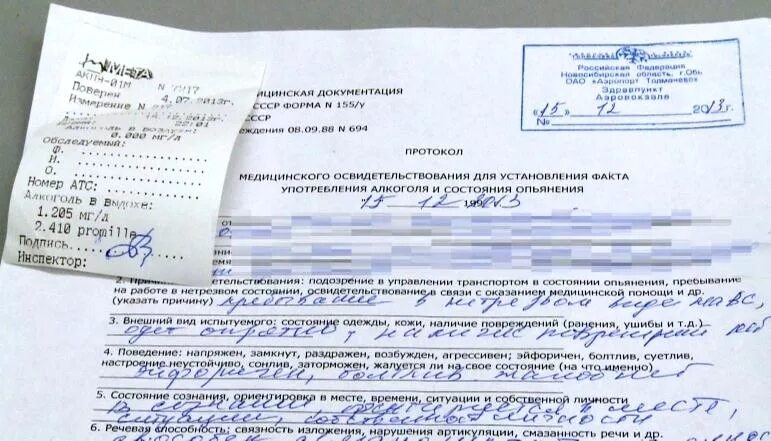 МЕТА
АКПЭ-01М N 7217
Поверен 4.07.2013г.
Измерение N
14.12.2013г.
22:01
Алкоголь в воздухе:
0.000 мг/л
Обследуемый:
Ф.
И.
О.
Номер АТС:
Алкоголь в выдохе:
1.205 мг/л
2.410 promille
Подпись
Инспектор:
ИЦИНСКАЯ ДОКУМЕНТАЦИЯ
СССР ФОРМА N 155/у
СССР
ждения 08.09.88 N 694
Российская Федерация
Новосибирская область, г.Обь
ОАО «Аэропорт Толмачево»
Здравпункт
Аэровокзала
«15» 12 2013г.
№
ПРОТОКОЛ
МЕДИЦИНСКОГО ОСВИДЕТЕЛЬСТВОВАНИЯ ДЛЯ УСТАНОВЛЕНИЯ ФАКТА
УПОТРЕБЛЕНИЯ АЛКОГОЛЯ И СОСТОЯНИЯ ОПЬЯНЕНИЯ
15 12 2013
2. етельствования: подозрение в управлении транспортом в состоянии опьянения, пребывание
на работе в нетрезвом состоянии, освидетельствование в связи с оказанием медицинской помощи и др.
(указать причину) пребывание в нетрезвом виде
3. Внешний вид испытуемого: состояние одежды, кожи, наличие повреждений (ранения, ушибы и т.д.)
одет опрятно, повреждений нет
4. Поведение: напряжен, замкнут, раздражен, возбужден, агрессивен; эйфоричен, болтлив, суетлив,
настроение неустойчиво, сонлив, заторможен, жалуется ли на свое состояние (на что именно)
эйфоричен, болтлив жалоб нет
5. Состояние сознания, ориентировка в месте, времени, ситуации и собственной личности
в сознании ориентируется в месте,
ситуации собственной личности
6. Речевая способность: связность изложения, нарушения артикуляции, смазанность речи и др.